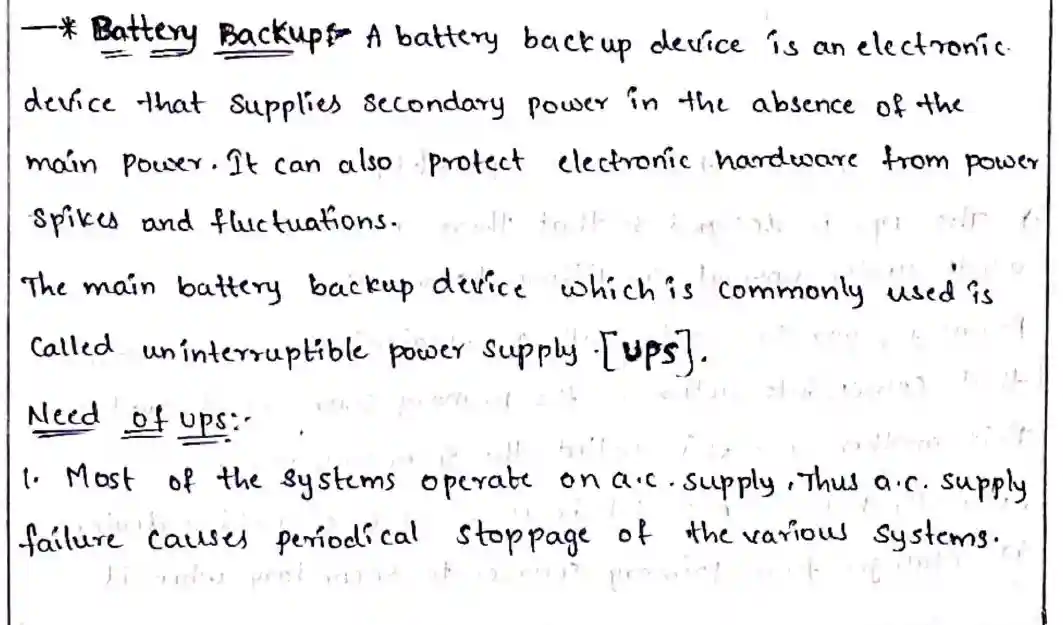 —* Battery Backup:- A battery backup device is an electronic
device that supplies secondary power in the absence of the
main power. It can also protect electronic hardware from power
spikes and fluctuations.
The main battery backup device which is commonly used is
called uninterruptible power supply [UPS].
Need of UPS:-
1. Most of the systems operate on a.c. supply. Thus a.c. supply
failure causes periodical stoppage of the various systems.